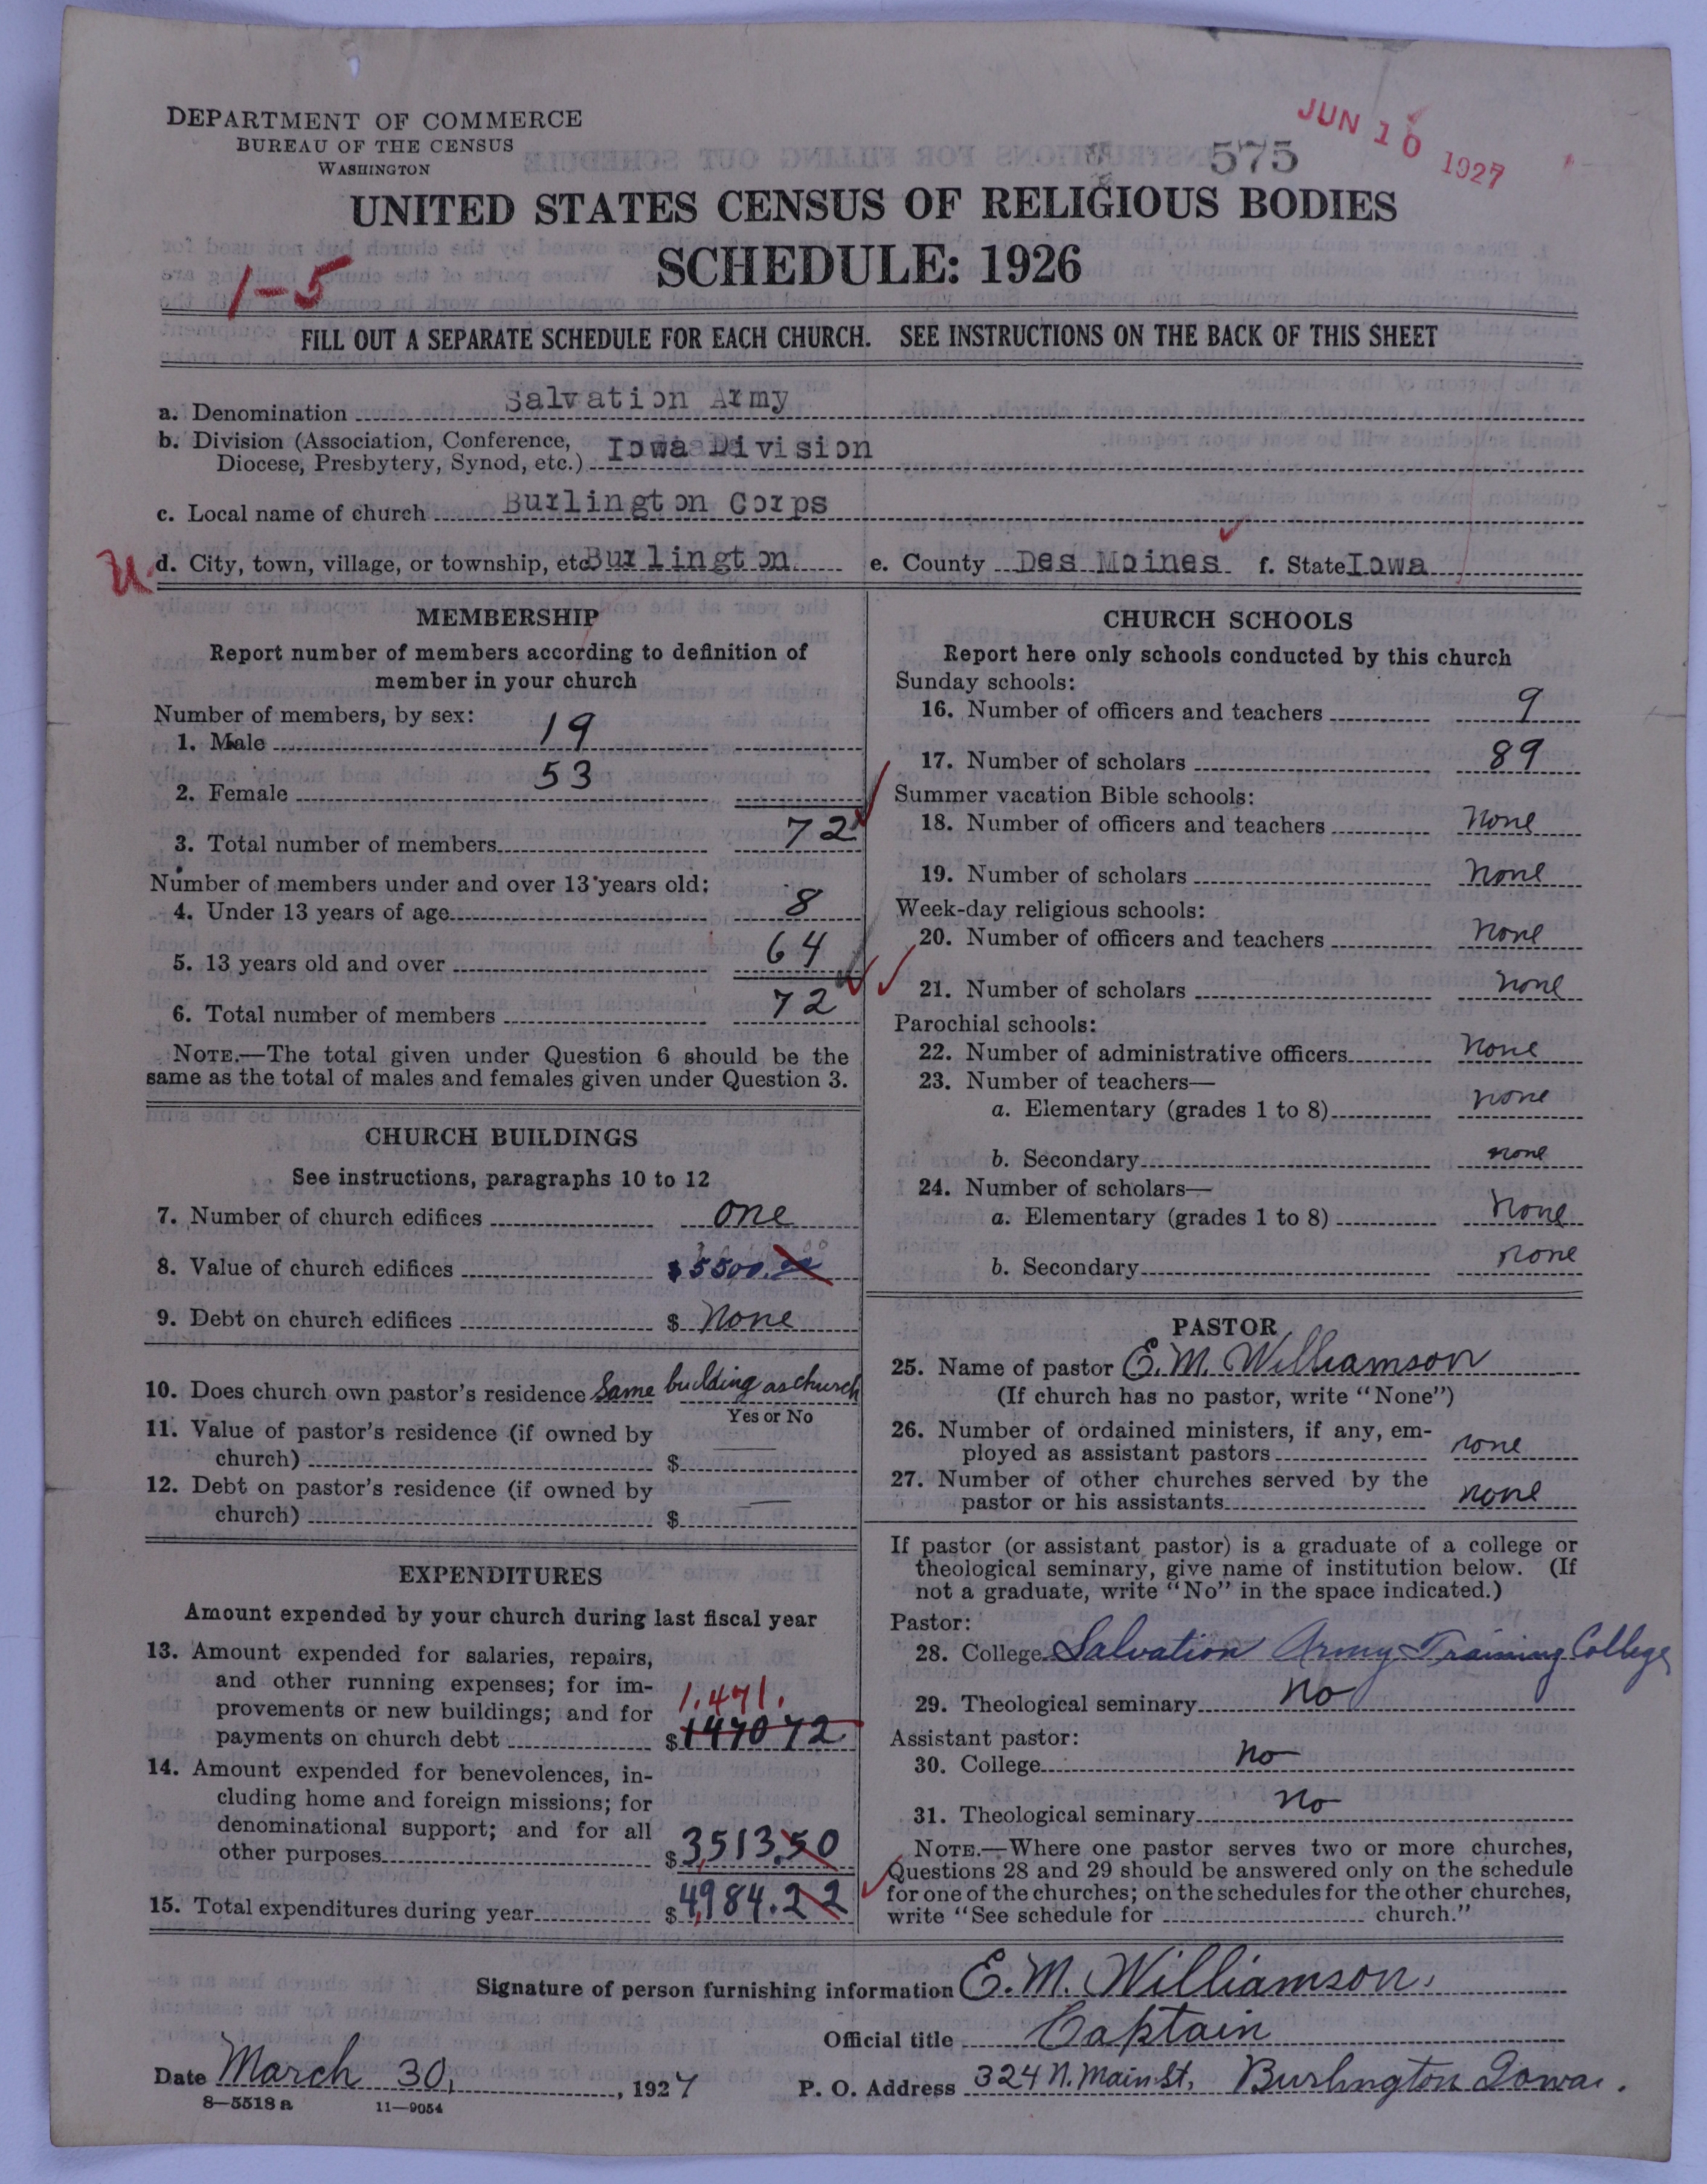 DEPARTMENT OF COMMERCE
BUREAU OF THE CENSUS
WASHINGTON
575
JUN 10 1927
UNITED STATES CENSUS OF RELIGIOUS BODIES
SCHEDULE: 1926
1-5
FILL OUT A SEPARATE SCHEDULE FOR EACH CHURCH. SEE INSTRUCTIONS ON THE BACK OF THIS SHEET
a. Denomination Salvation Army
b. Division (Association, Conference, Diocese, Presbytery, Synod, etc.) Iowa Division
c. Local name of church Burlington Corps
d. City, town, village, or township, etc Burlington e. County Des Moines f. State Iowa
MEMBERSHIP
Report number of members according to definition of
member in your church
Number of members, by sex:
1. Male 19
2. Female 53
3. Total number of members 72
Number of members under and over 13 years old:
4. Under 13 years of age 8
5. 13 years old and over 64
6. Total number of members 72
NOTE.—The total given under Question 6 should be the
same as the total of males and females given under Question 3.
CHURCH BUILDINGS
See instructions, paragraphs 10 to 12
7. Number of church edifices one
8. Value of church edifices $5500.00
9. Debt on church edifices $ None
10. Does church own pastor's residence Same building as church
Yes or No
11. Value of pastor's residence (if owned by
church) $ —
12. Debt on pastor's residence (if owned by
church) $ —
EXPENDITURES
Amount expended by your church during last fiscal year
13. Amount expended for salaries, repairs,
and other running expenses; for im-
provements or new buildings; and for 1,471.
payments on church debt $147072
14. Amount expended for benevolences, in-
cluding home and foreign missions; for
denominational support; and for all
other purposes $3,513.50
15. Total expenditures during year $4,984.22
CHURCH SCHOOLS
Report here only schools conducted by this church
Sunday schools:
16. Number of officers and teachers 9
17. Number of scholars 89
Summer vacation Bible schools:
18. Number of officers and teachers None
19. Number of scholars None
Week-day religious schools:
20. Number of officers and teachers None
21. Number of scholars None
Parochial schools:
22. Number of administrative officers None
23. Number of teachers—
a. Elementary (grades 1 to 8) None
b. Secondary none
24. Number of scholars—
a. Elementary (grades 1 to 8) None
b. Secondary None
PASTOR
25. Name of pastor E. M. Williamson
(If church has no pastor, write "None")
26. Number of ordained ministers, if any, em-
ployed as assistant pastors none
27. Number of other churches served by the
pastor or his assistants none
If pastor (or assistant pastor) is a graduate of a college or
theological seminary, give name of institution below. (If
not a graduate, write "No" in the space indicated.)
Pastor:
28. College Salvation Army Training College
29. Theological seminary No
Assistant pastor:
30. College No
31. Theological seminary No
NOTE.—Where one pastor serves two or more churches,
Questions 28 and 29 should be answered only on the schedule
for one of the churches; on the schedules for the other churches,
write "See schedule for church."
Signature of person furnishing information E. M. Williamson.
Official title Captain
Date March 30, 1927 P. O. Address 324 N. Main St, Burlington Iowa.
8—5518 a 11—9054